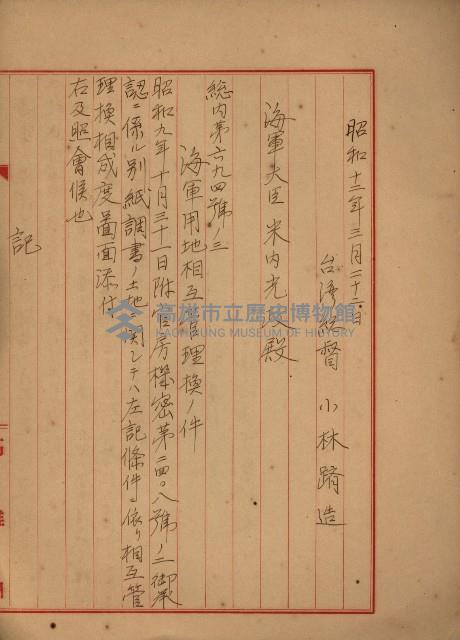 昭和十二年三月二十二日
台湾総督 小林躋造
海軍大臣 米内光政殿
総内第六九四號ノ三
海軍用地相互管理換ノ件
昭和九年十月三十一日附官房機密第二四〇八號ノ二御承
認ニ係ル別紙調書ノ土地ニ関シテハ左記條件ニ依リ相互管
理換相成度啚面添付
右及照會候也
記
高雄市立歷史博物館
KAOHSIUNG MUSEUM OF HISTORY